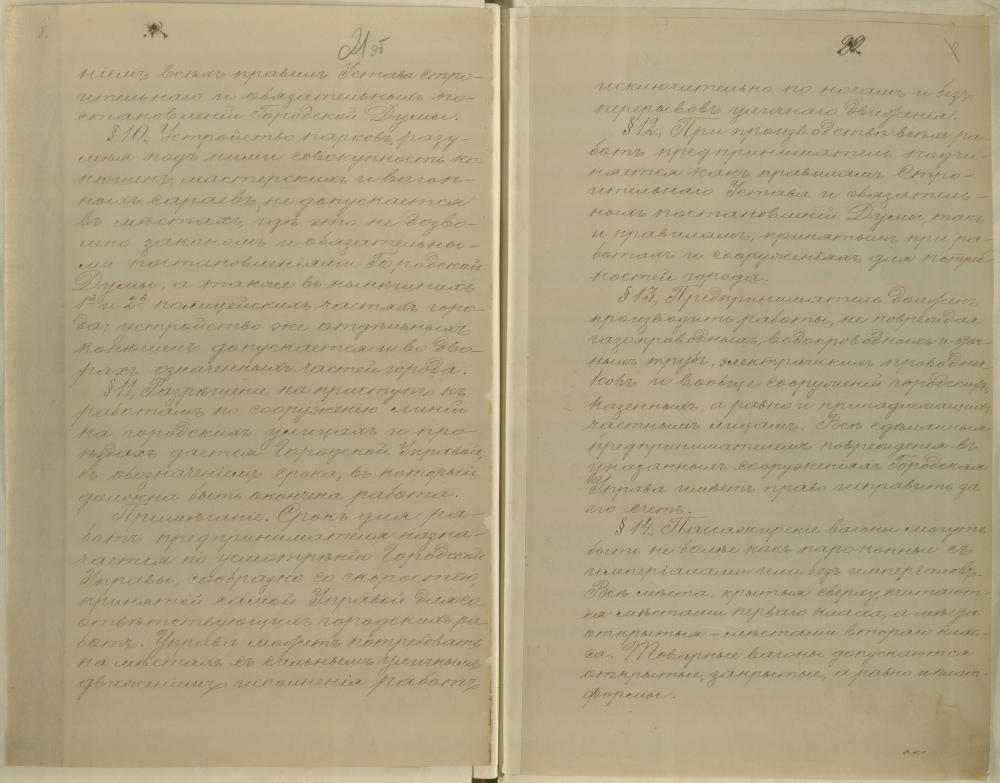 21 об
ніемъ всѣхъ правилъ Устава стро-
ительнаго и обязательныхъ по-
становленій Городской Думы.
§ 10. Устройство парковъ, разу-
мѣя подъ ними совокупность ко-
нюшенъ, мастерскихъ и вагон-
ныхъ сараевъ, не допускается
въ мѣстахъ, гдѣ это не дозво-
лено закономъ и обязательны-
ми постановленіями Городской
Думы, а также въ нынѣшнихъ
1й и 2й полицейскихъ частяхъ горо-
да; устройство же отдѣльныхъ
конюшенъ допускается и во дво-
рахъ означенныхъ частей города.
§ 11. Разрѣшеніе на приступъ къ
работамъ по сооруженію линій
на городскихъ улицахъ и про-
ѣздахъ дается Городской Управой,
съ обозначеніемъ срока, въ который
должна быть окончена работа.
Примѣчаніе. Срокъ для ра-
ботъ предпринимателя назна-
чается по усмотрѣнію Городской
Управы, сообразно со скоростію
принятой самой Управой для со
отвѣтствующихъ городскихъ ра-
ботъ. Управа можетъ потребовать
на мѣстахъ съ сильнымъ уличнымъ
движеніемъ исполненія работъ
22.
исключительно по ночамъ и безъ
перерывовъ уличнаго движенія.
§ 12. При производствѣ всѣхъ ра-
ботъ предприниматель подчи-
няется какъ правиламъ Стро-
ительнаго Устава и обязатель-
нымъ постановленій Думы, такъ
и правиламъ, принятымъ при ра-
ботахъ и сооруженіяхъ для потреб-
ностей города.
§ 13. Предприниматель долженъ
производить работы, не повреждая
газопроводныхъ, водопроводныхъ и
ныхъ трубъ, электрическихъ проводни-
ковъ и вообще сооруженій городскихъ,
казенныхъ, а равно и принадлежащихъ
частнымъ лицамъ. Всѣ сдѣланныя
предпринимателемъ поврежденія въ
указанныхъ сооруженіяхъ Городская
Управа имѣетъ право исправить за
его счетъ.
§ 14. Пассажирскіе вагоны могутъ
быть не болѣе какъ пароконные съ
имперіалами или безъ имперіаловъ.
Всѣ мѣста, крытыя сверху, считают-
ся мѣстами перваго класса, а мѣста
открытыя – мѣстами втораго клас-
са. Товарные вагоны допускаются
открытые, закрытые, а равно и плат-
формы.